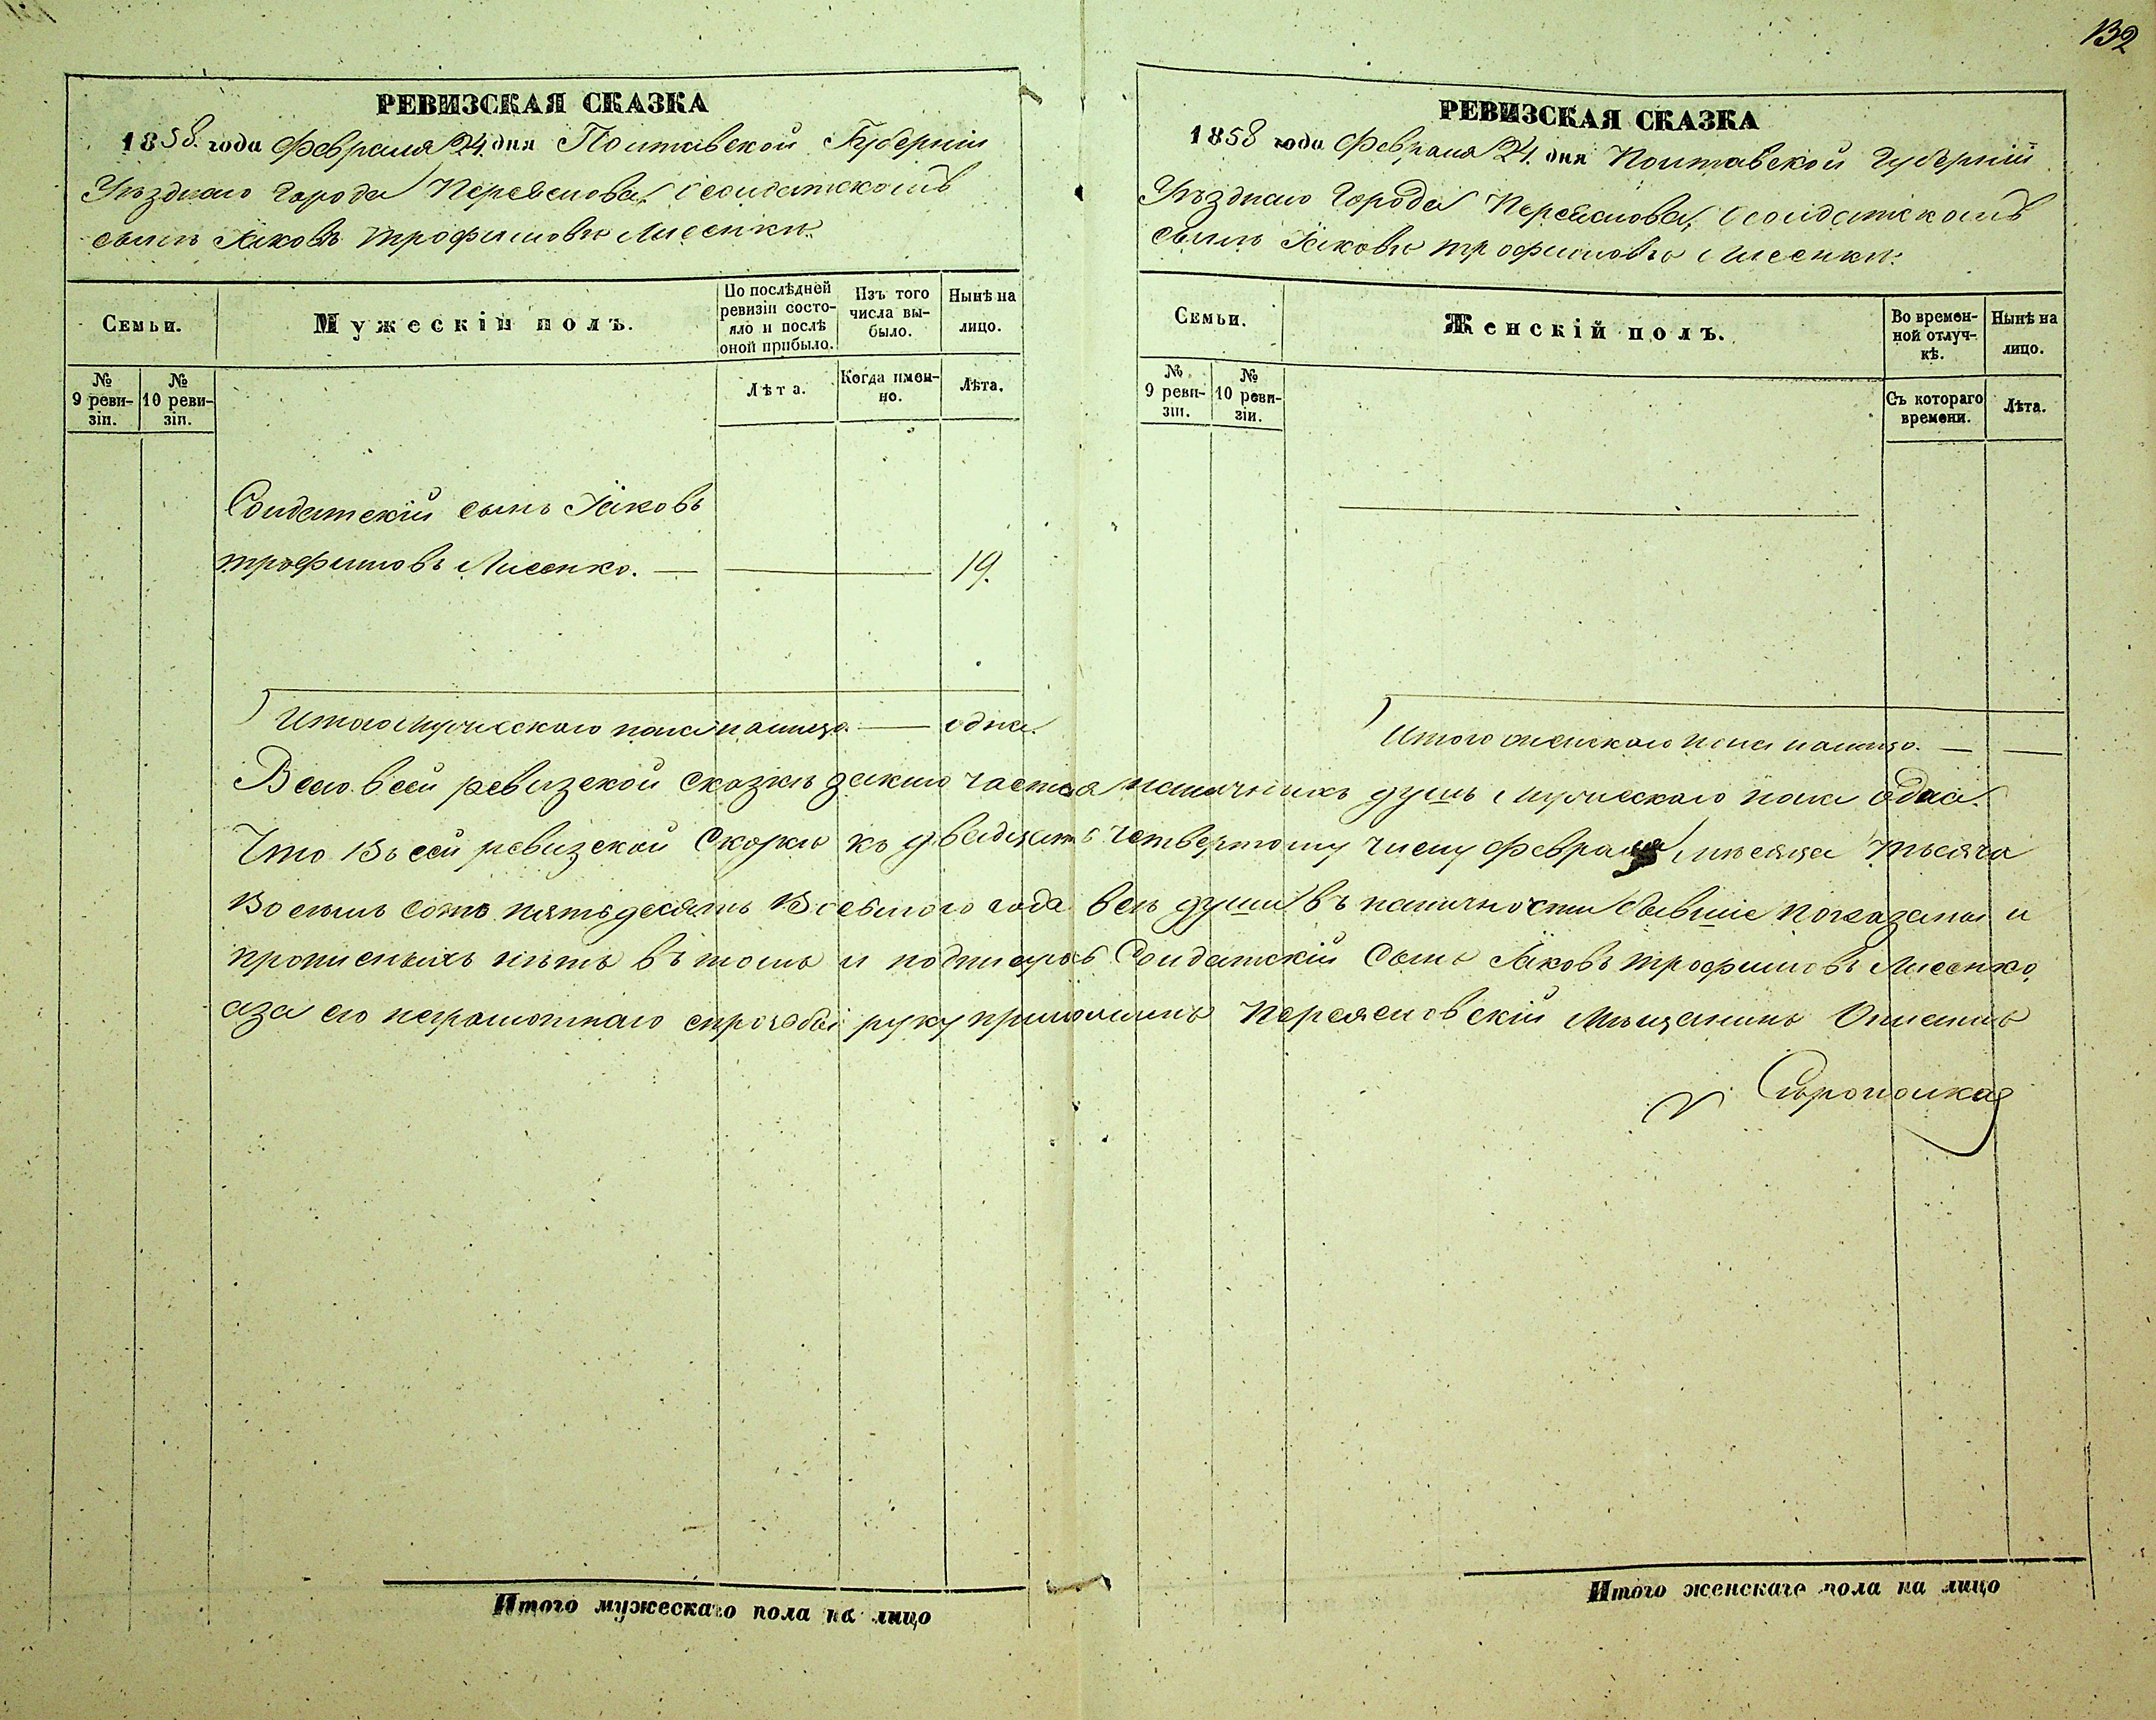 132
РЕВИЗСКАЯ СКАЗКА
1858. года Февраля 24. дня Полтавской Губерніи
Уѣзднаго города Переяслова, о солдатскомъ
сынѣ Яковѣ Трофимовѣ Лисенкѣ.
Семьи.
Мужескій полъ.
По послѣдней ревизіи состояло и послѣ оной прибыло.
Изъ того числа выбыло.
Нынѣ на лицо.
№ 9 ревизіи.
№ 10 ревизіи.
Лѣта.
Когда именно.
Лѣта.
Солдатскій сынъ Яковъ
Трофимовъ Лисенко. — 19.
Итого мужескаго пола налицо. — одна.
РЕВИЗСКАЯ СКАЗКА
1858 года Февраля 24. дня Полтавской Губерніи
Уѣзднаго города Переяслова, о солдатскомъ
сынѣ Яковѣ Трофимовѣ Лисенкѣ.
Семьи.
Женскій полъ.
Во временной отлучкѣ.
Нынѣ на лицо.
№ 9 ревизіи.
№ 10 ревизіи.
Съ котораго времени.
Лѣта.
Итого женскаго пола налицо. — —
Всего въ сей ревизской сказкѣ наличныхъ душъ мужескаго пола одна.
Что въ сей ревизской скозкѣ къ двадцать четвертому числу февраля мѣсяца тысяча
восемь сотъ пятьдесятъ восьмого года всѣ души въ наличности бывшіе показаны и
прописныхъ нѣтъ въ томъ и подписуюсь Солдатскій сынъ Яковъ Трофимовъ Лисенко,
а за его неграмотнаго съ прозбы руку приложилъ Переясловскій Мѣщанинъ
Итого мужескаго пола на лицо
Итого женскаго пола на лицо